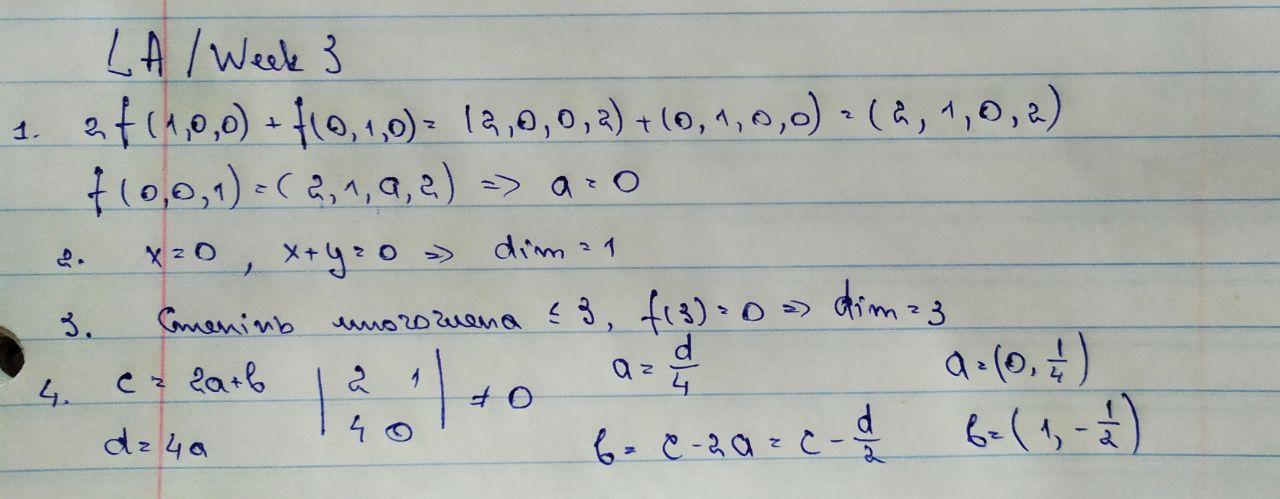 LA / Week 3
1. 2f(1,0,0) + f(0,1,0) = (2,0,0,2) + (0,1,0,0) = (2,1,0,2)
f(0,0,1) = (2,1,a,2) => a = 0
2. x = 0, x+y = 0 => dim = 1
3. Степінь многочлена ≤ 3, f(3) = 0 => dim = 3
4. c = 2a+b |2 1; 4 0| ≠ 0 a = d/4 a = (0, 1/4)
d = 4a b = c - 2a = c - d/2 b = (1, -1/2)